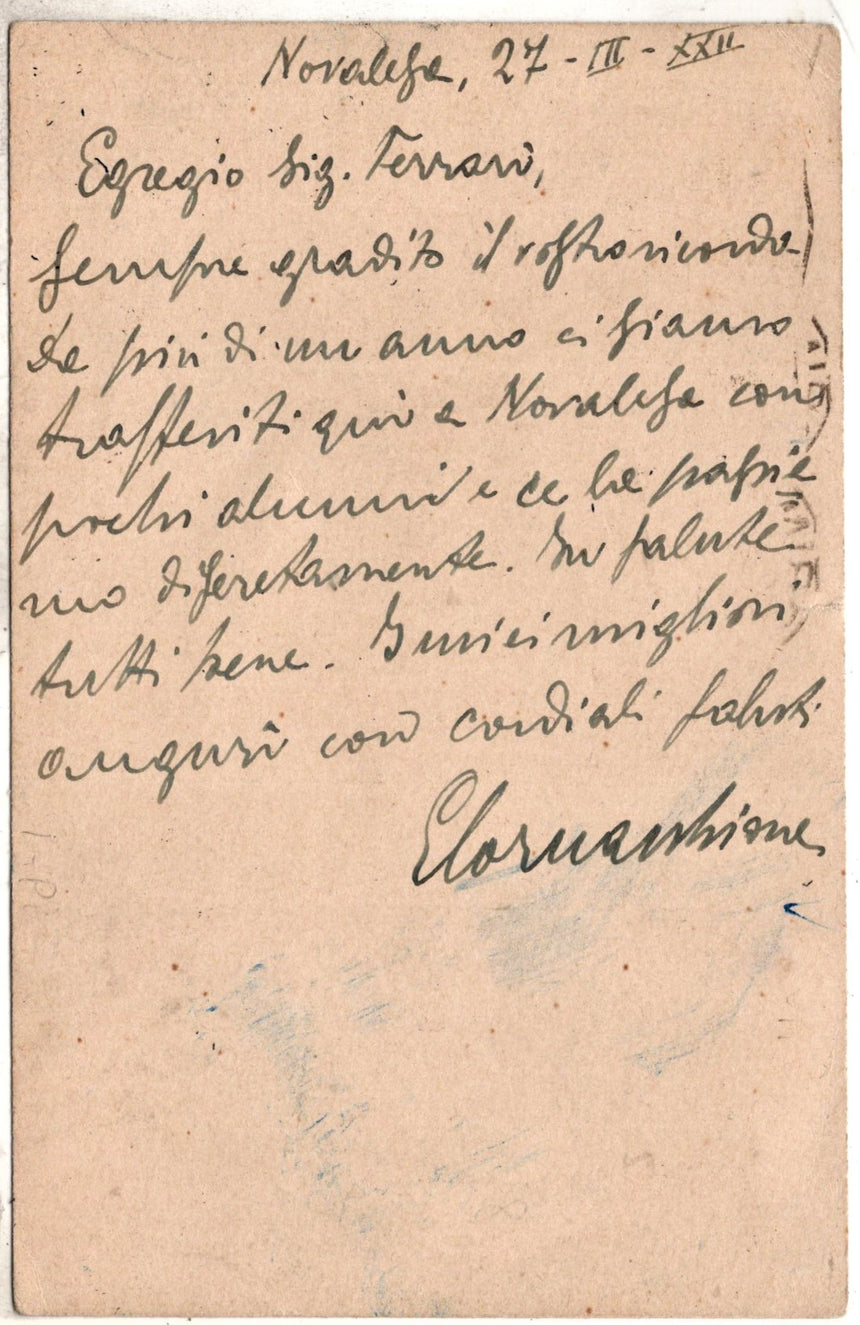 Novalesa, 27 - III - XXII
Egregio Sig. Ferrari,
Sempre gradito il vostro ricordo.
Da più di un anno ci siamo
trasferiti qui a Novalesa con
pochi alunni e ce la passia
mo discretamente. In salute
tutti bene. I miei migliori
auguri con cordiali saluti